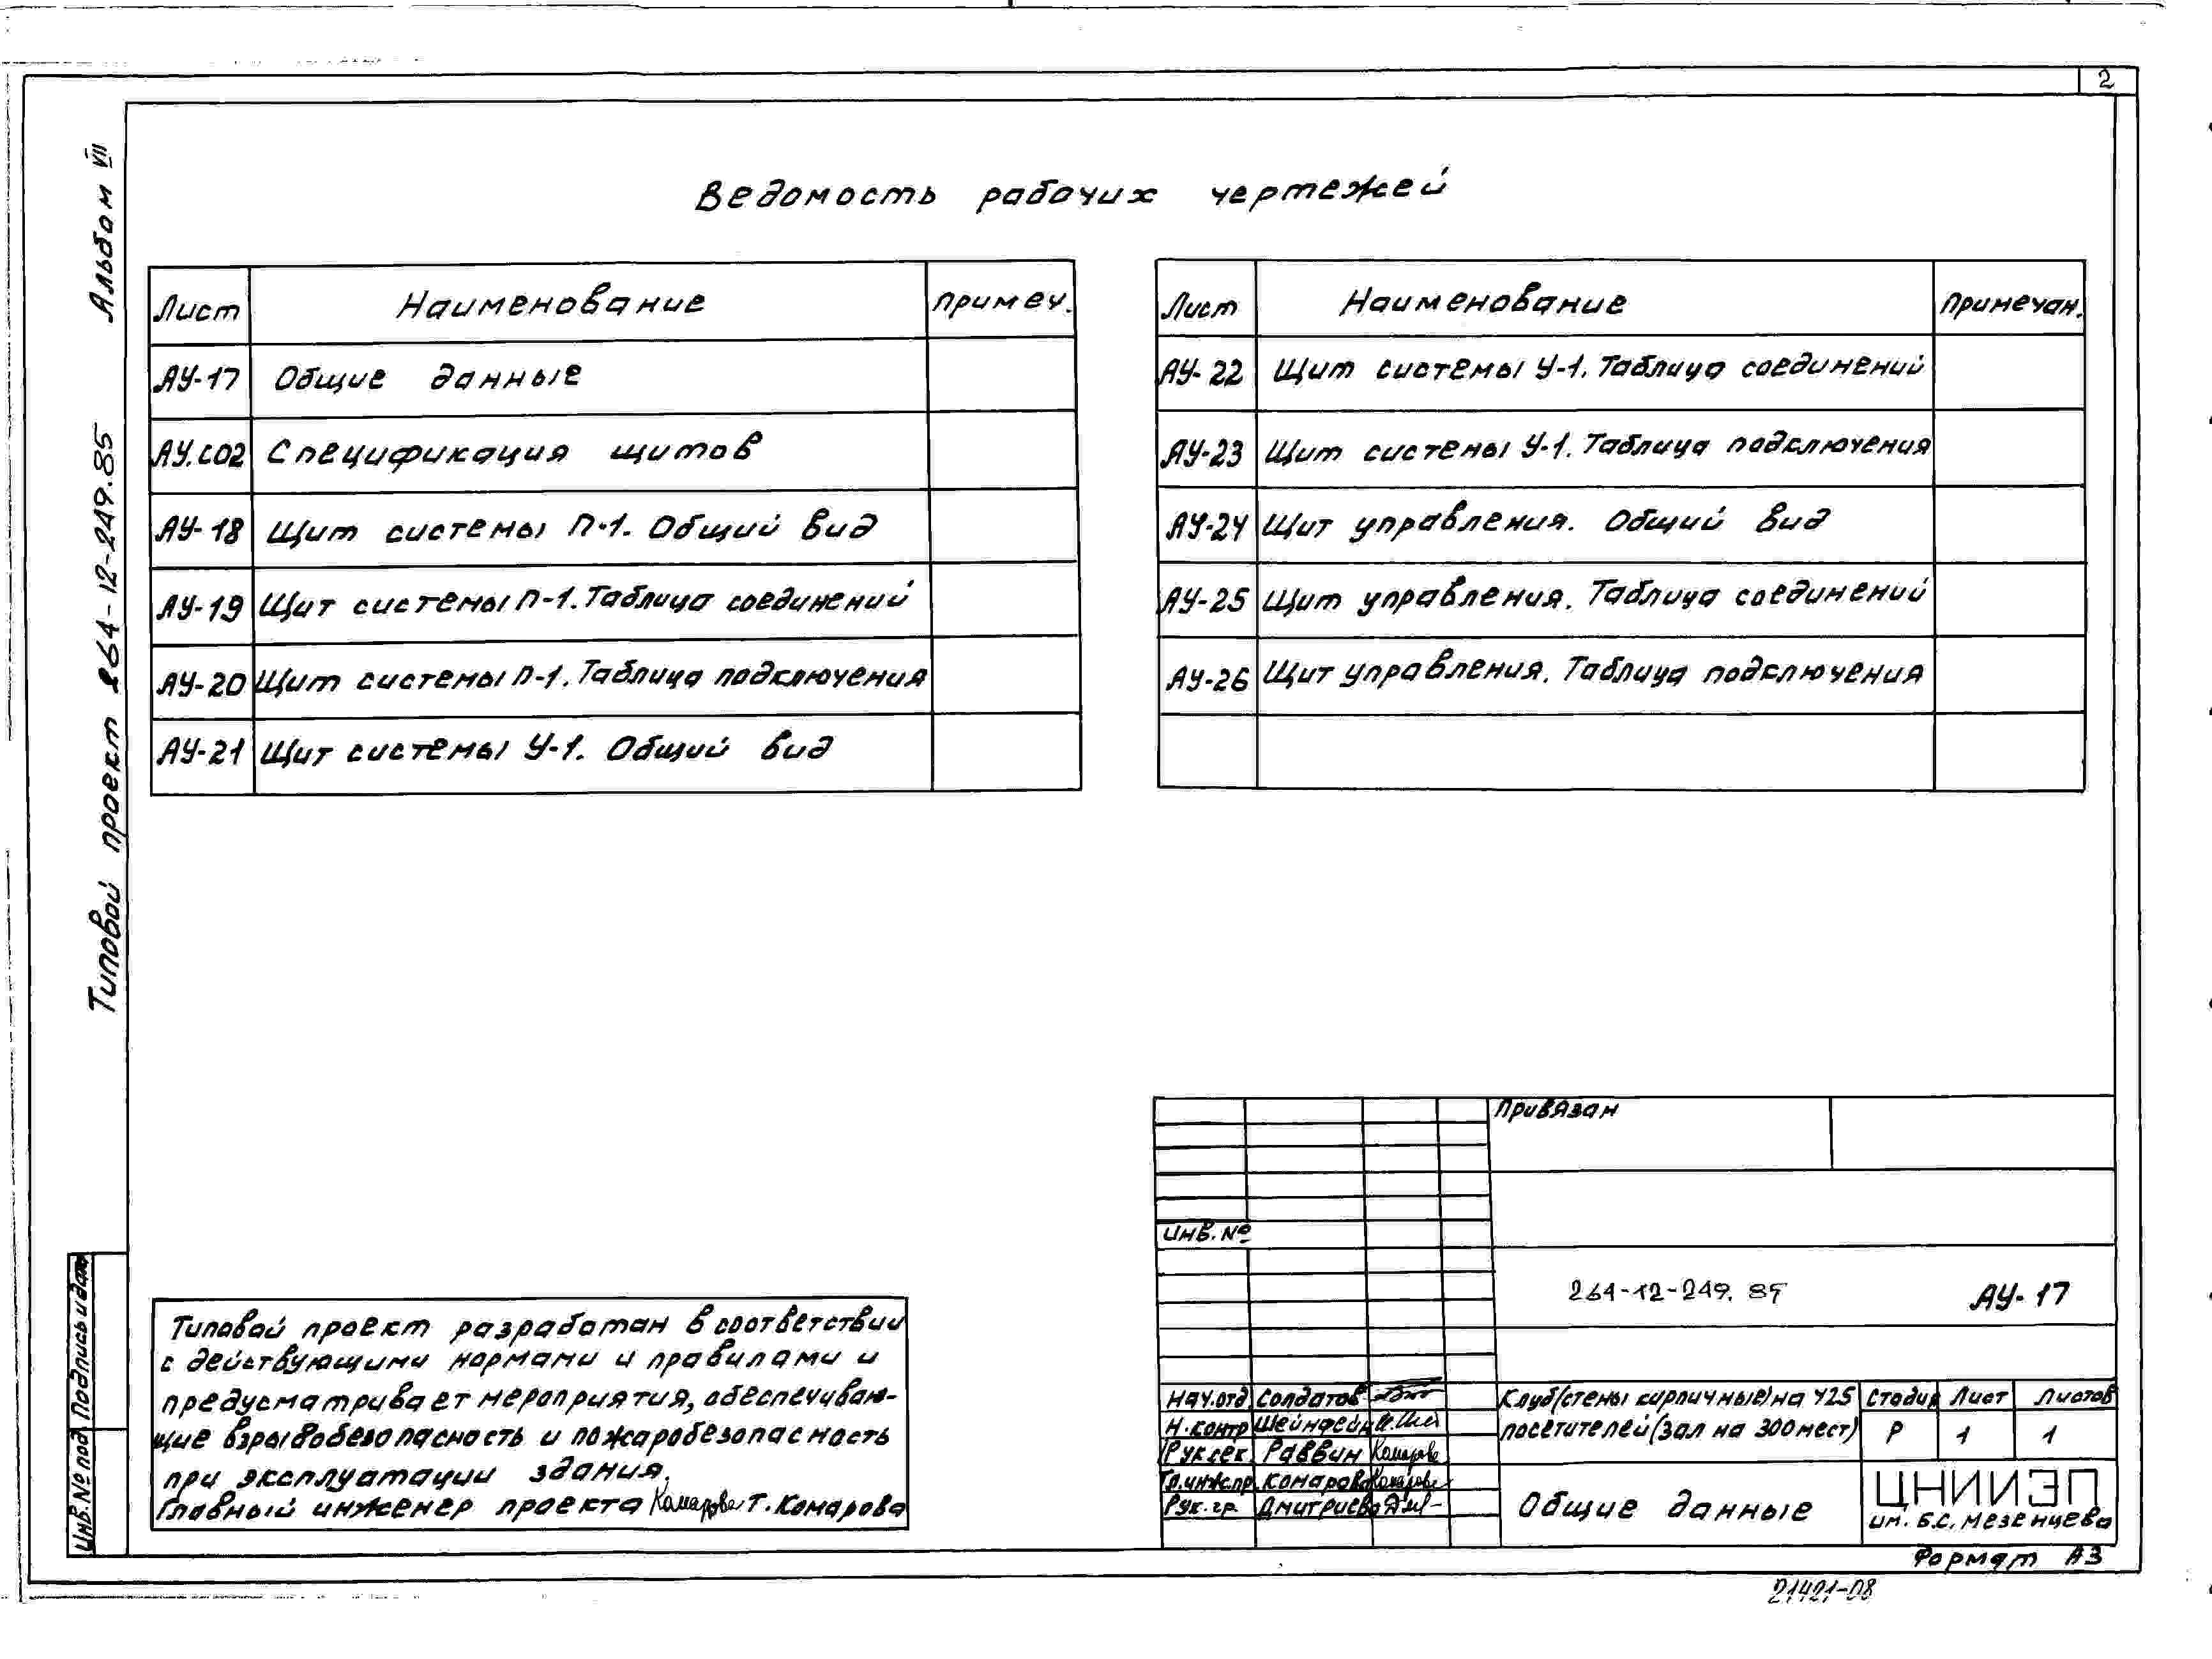 2
Альбом VII
Типовой проект 264-12-249.85
Ведомость рабочих чертежей
Лист Наименование примеч.
АУ-17 Общие данные
АУ.СО2 Спецификация щитов
АУ-18 Щит системы П-1. Общий вид
АУ-19 Щит системы П-1. Таблица соединений
АУ-20 Щит системы П-1. Таблица подключения
АУ-21 Щит системы У-1. Общий вид
Лист Наименование Примечан.
АУ-22 Щит системы У-1. Таблица соединений
АУ-23 Щит системы У-1. Таблица подключения
АУ-24 Щит управления. Общий вид
АУ-25 Щит управления. Таблица соединений
АУ-26 Щит управления. Таблица подключения
Типовой проект разработан в соответствии
с действующими нормами и правилами и
предусматривает мероприятия, обеспечиваю-
щие взрывобезопасность и пожаробезопасность
при эксплуатации здания.
Главный инженер проекта Комарова Т. Комарова
Инв.№ под. Подпись и дата
Привязан
Инв.№
264-12-249.85 АУ-17
Нач.отд. Солдатов
Н.контр Шейнфейн
Рук.сек. Раввин Комарова
Гл.инж.пр. Комарова Комарова
Рук.гр. Дмитриева
Клуб (стены кирпичные) на 425
посетителей (зал на 300 мест)
Стадия Лист Листов
Р 1 1
Общие данные
ЦНИИЭП
им. Б.С. Мезенцева
Формат А3
21421-08